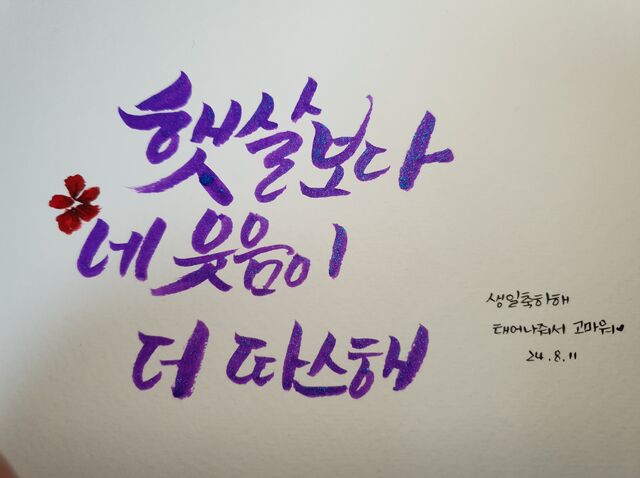 햇살보다
네 웃음이
더 따스해
생일축하해
태어나줘서 고마워♥
24.8.11